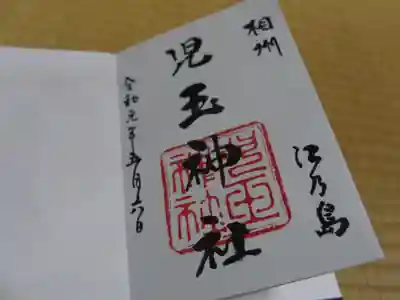 相州
江乃島
児玉神社
児玉神社
令和元年五月六日